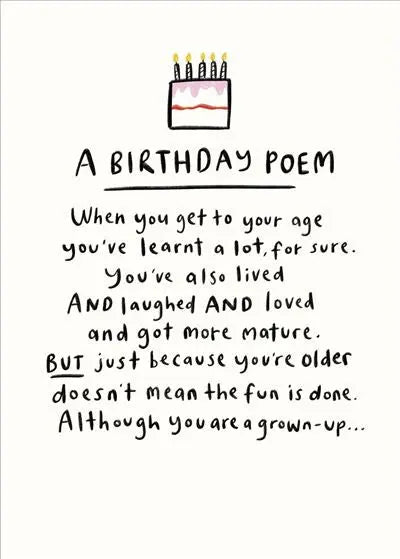 A BIRTHDAY POEM
When you get to your age
you've learnt a lot, for sure.
You've also lived
AND laughed AND loved
and got more mature.
BUT just because you're older
doesn't mean the fun is done.
Although you are a grown-up...